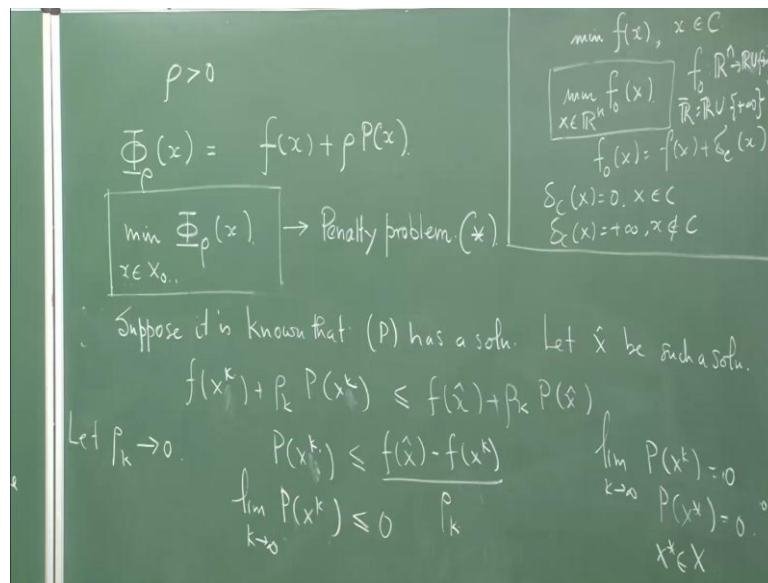 ρ > 0
Φ_ρ(x) = f(x) + ρ P(x).
min Φ_ρ(x). → Penalty problem. (*)
x ∈ X₀..
min f(x), x ∈ C
min f₀(x) f₀ ℝⁿ→ℝ∪{
x∈ℝⁿ ℝ̄=ℝ∪{+∞}
f₀(x) = f(x) + δ_c(x)
δ_C(x) = 0, x ∈ C
δ_C(x) = +∞, x ∉ C
Suppose it is known that (P) has a soln. Let x̂ be such a soln.
f(x^k) + ρ_k P(x^k) ≤ f(x̂) + ρ_k P(x̂)
Let ρ_k → 0.
P(x^k) ≤ f(x̂) - f(x^k)
ρ_k
lim P(x^k) ≤ 0
k→∞
lim P(x^k) = 0
k→∞
P(x*) = 0.
x* ∈ X